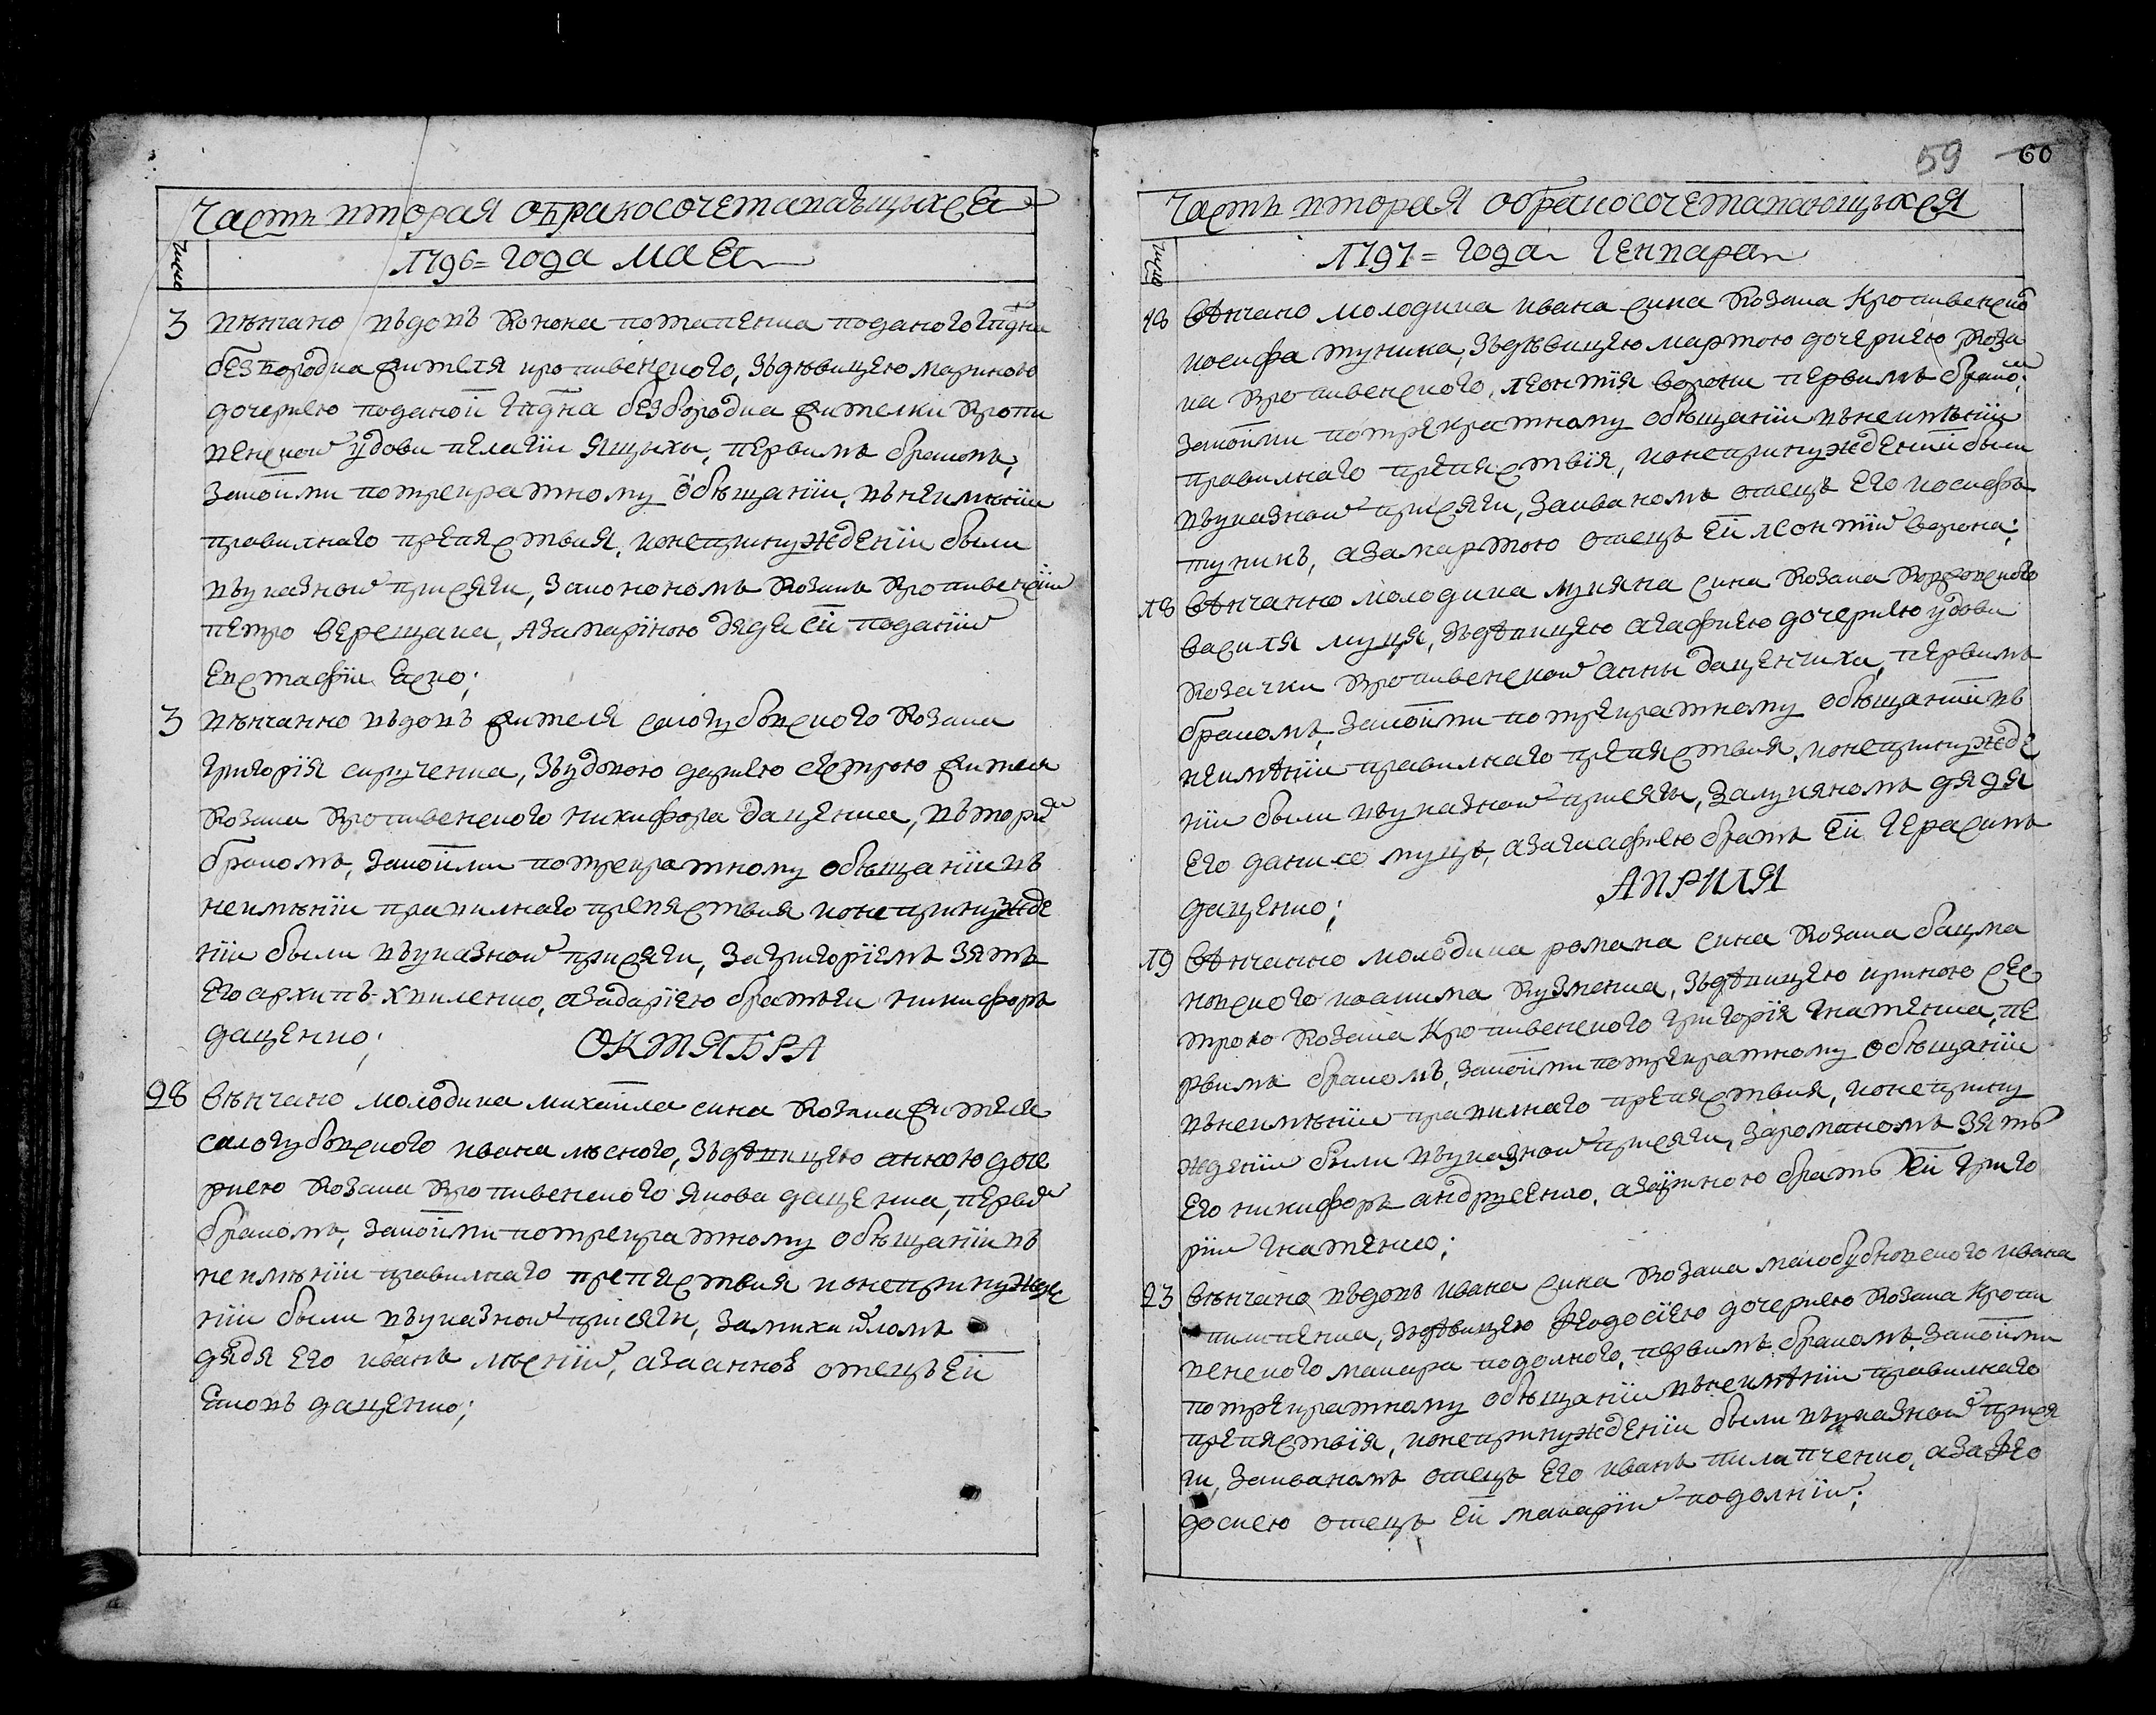 Часть вторая обракосочетаваыцыхся
1796= года маея
Число
3 вѣнчано въдовъ конона потапенка поданого гпдна
безбородка жителя кротивенского, зъдювицею мариною
дочерю поданой гпдна безбородка жителки кроти
венской удови пелагіи яцыхи, первимъ бракомъ,
закоими потрекратному обѣщаніи, внеимѣніи
правилнаго препяствия, ионепринужденіи были
въуказной присяги, законономъ козакъ кротивенскій
петро верещака, азамаріною дядя ей поданій
евстафій
3 вѣнчанно въдовъ жителя сологубовского козака
григорія зъудовою дариею сестрою жителя
козака кротивенского никифора даценка, вторим
бракомъ, закоими потрекратному обѣщаніи въ
неимѣніи правилнаго препяствия ионепринужде
ніи были въуказной присяги, загригоріемъ зять
его архипъ хвиленко, азадаріею братъеи никифоръ
даценко;
ОКТЯБРА
28 вѣнчано молодика михаила сина козака жителя
сологубовского ивана лѣсного, здѣвицею анною доч
риею козака кротивенского якова даценка, первим
бракомъ, закоими потрекратному обѣщаніи въ
неимѣніи правилнаго препяствия ионепринужде
ніи были въуказной присяги, замихаиломъ
дядя его иванъ лѣсній, азаанною отецъ ей
яковъ даценко;
59 60
Часть вторая обракосочетавающыхся
1797= года генвара
Число
18 вѣнчано молодика ивана сина козака кротивенско
иосифа тупика, зъдѣвицею мартою дочериею коза
ка кротивенского, леонтія ворони первимъ браком:
закоими потрекратному обѣщаніи внеимѣніи
правилнаго препяствія, ионепринужденіи были
въуказной присяги, заиваномъ отецъ его иосифъ
тупикъ, азамартою отецъ ей леонтій ворона;
18 вѣнчанно молодика лукяна сина козака
василя муця, зъдѣвицею агафиею дочерию удови
козачки кротивенской анны даценчихи, первимъ
бракомъ, закоими потрекратному обѣщаніи въ
неимѣніи правилнаго препяствия, ионепринужде
ніи были въуказной присяги, залукяномъ дядя
его данило муцъ, азагафиею братъ ей герасимъ
даценко;
АПРИЛЯ
19 вѣнчанно молодика романа сина козака бацма
новского иоакима кузменка, зъдѣвицею ириною сес
трою козака кротивенского григорія гнатенка, пе
рвимъ бракомъ, закоими потрекратному обѣщаніи
внеимѣніи правилнаго препяствия, ионеприну
жденіи были въуказной присяги, зароманомъ зять
его никифоръ андрусенко, азаириною братъ ей григо
рій гнатенко;
23 вѣнчано въдовъ ивана сина козака малобубновского ивана
пилипченка, здѣвицею феодосіею дочериею козака кроти
венского макара подолного, первимъ бракомъ, закоими
потрекратному обѣщаніи внеимѣніи правилнаго
препяствія, ионепринужденіи были въуказной прися
ги, заиваномъ отецъ его иванъ пилипченко, азафео
досиею отецъ ей макарій подолній;